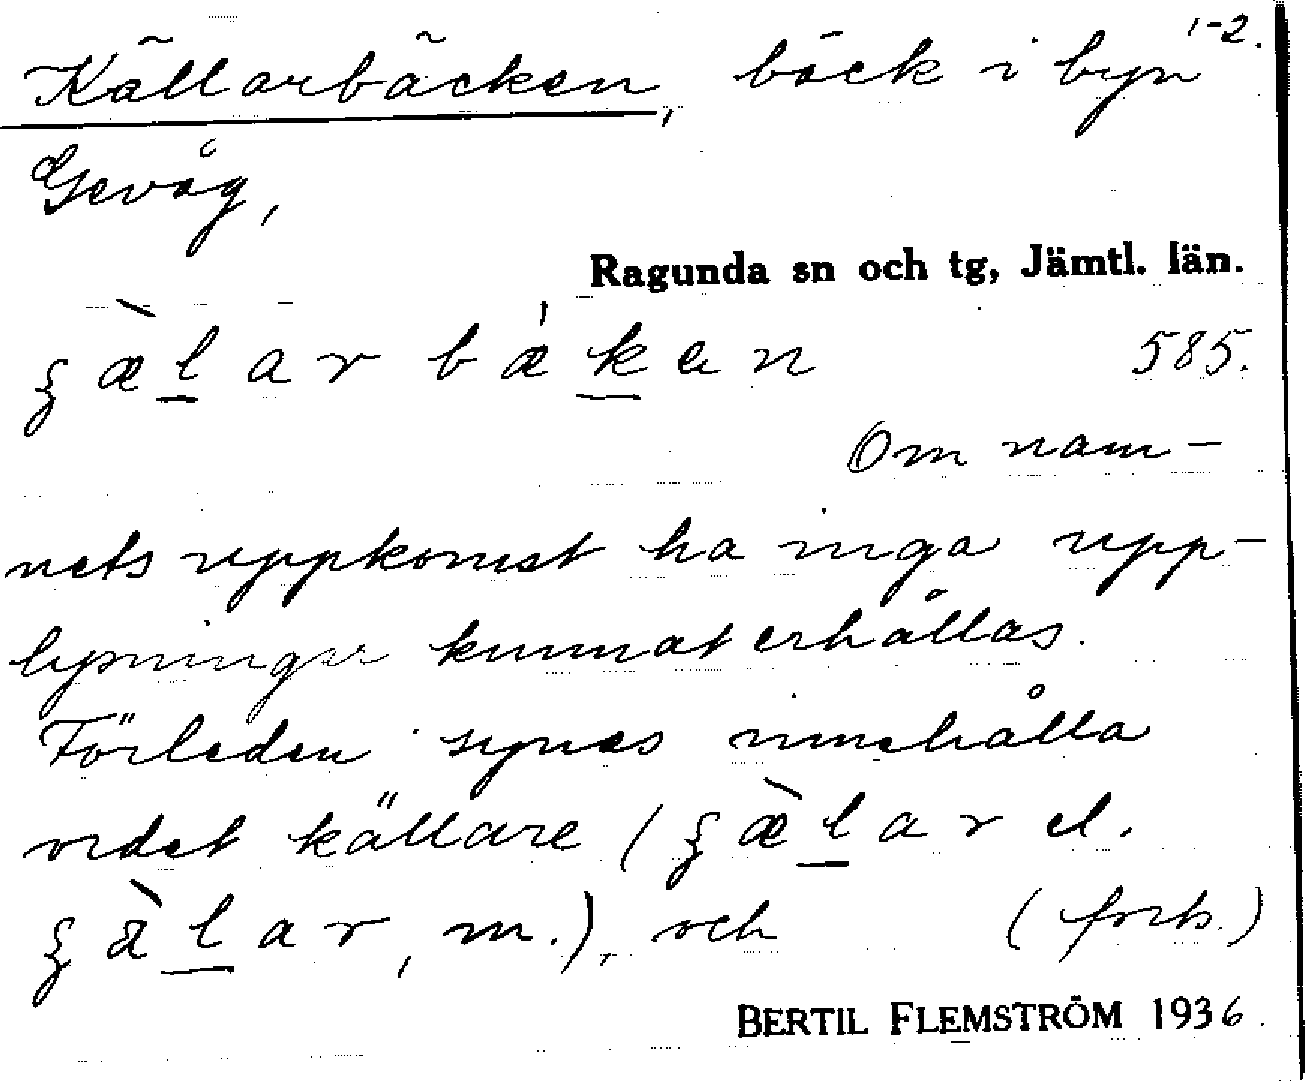 Källarbäcken, bäck i byn 1-2.
Gevåg,
Ragunda sn och tg, Jämtl. län.
ʒæ̀l̲ar bæ̍k̲en 585.
Om nam-
nets uppkomst ha inga upp-
lysningar kunnat erhållas.
Förleden synes innehålla
ordet källare (ʒæ̀l̲ar el.
ʒàl̲ar, m.), och (forts.)
BERTIL FLEMSTRÖM 1936.